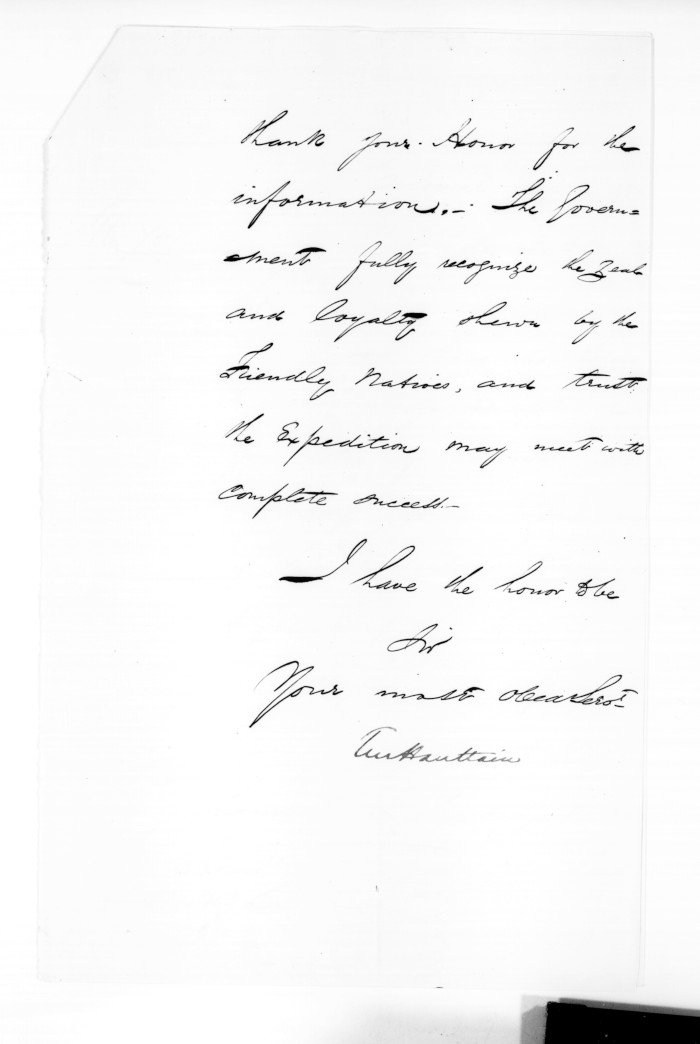 thank your Honor for the
information. - The Govern=
=ment fully recognize the Zeal
and loyalty shewn by the
Friendly Natives, and trust
the Expedition may meet with
complete success. -
I have the honor to be
Sir
Your most obed Servt
Haultain